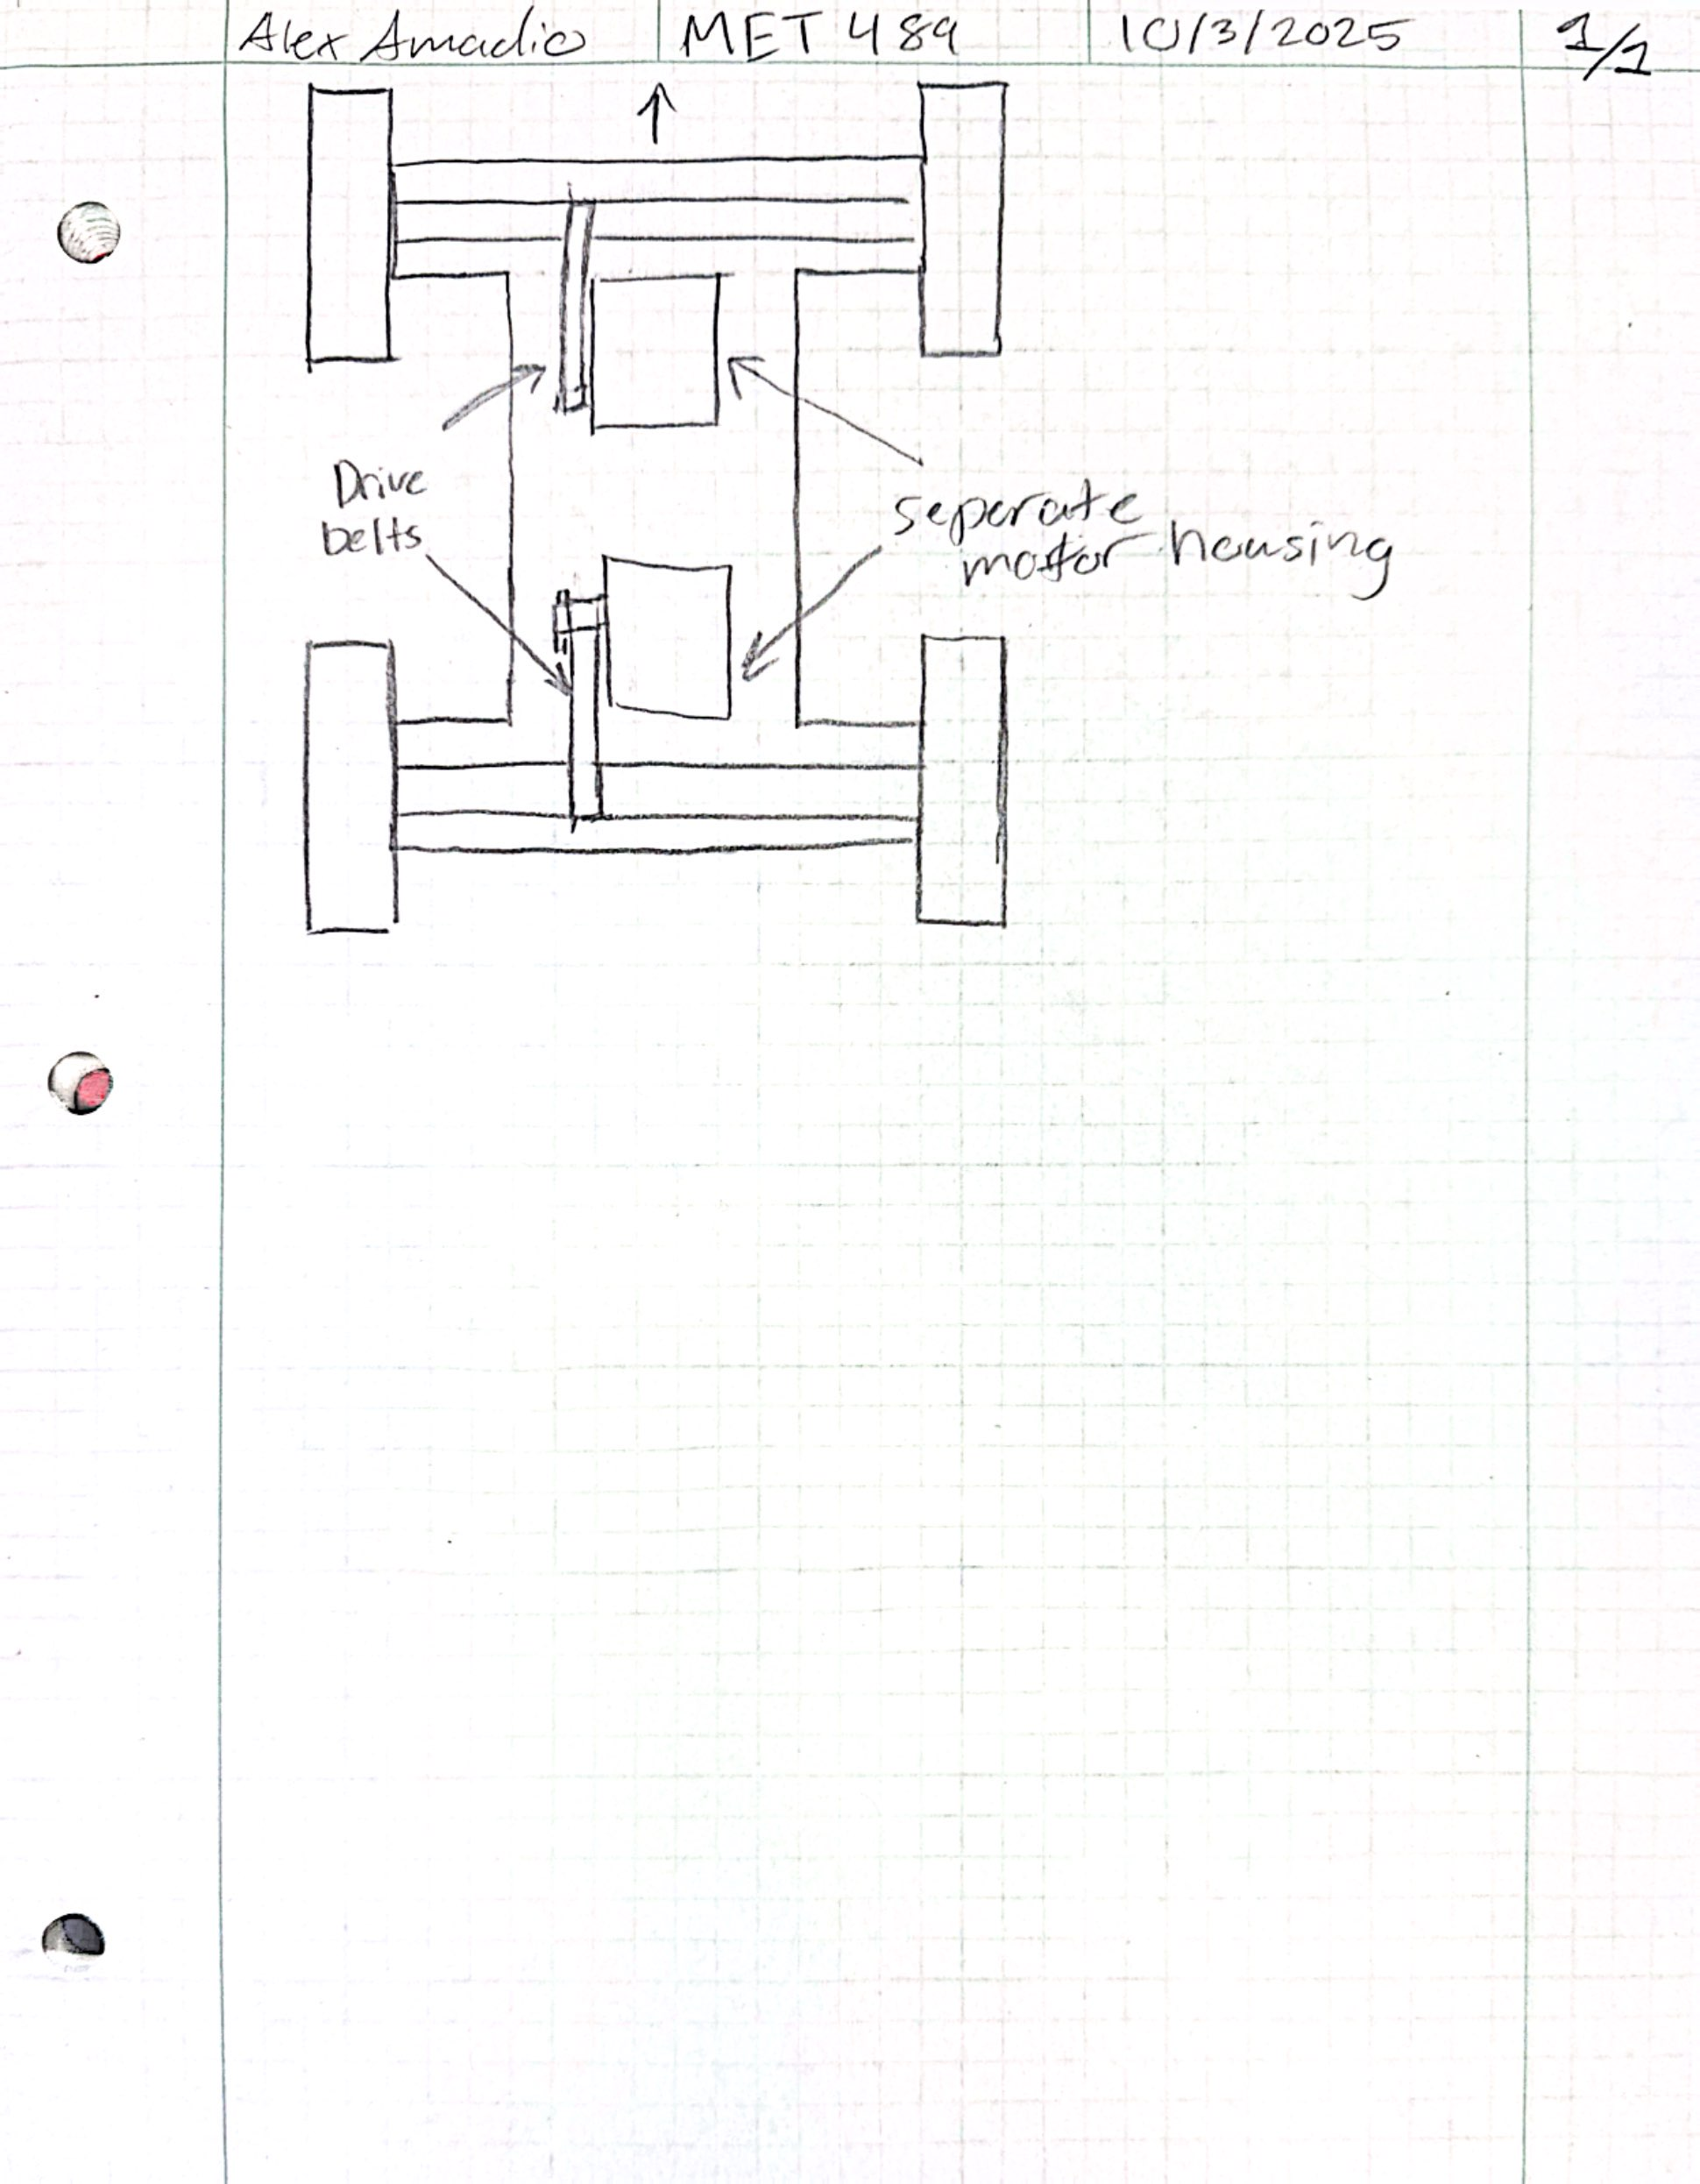 Alex Amadio
MET 489
10/3/2025
1/1
Drive
belts
seperate
motor housing